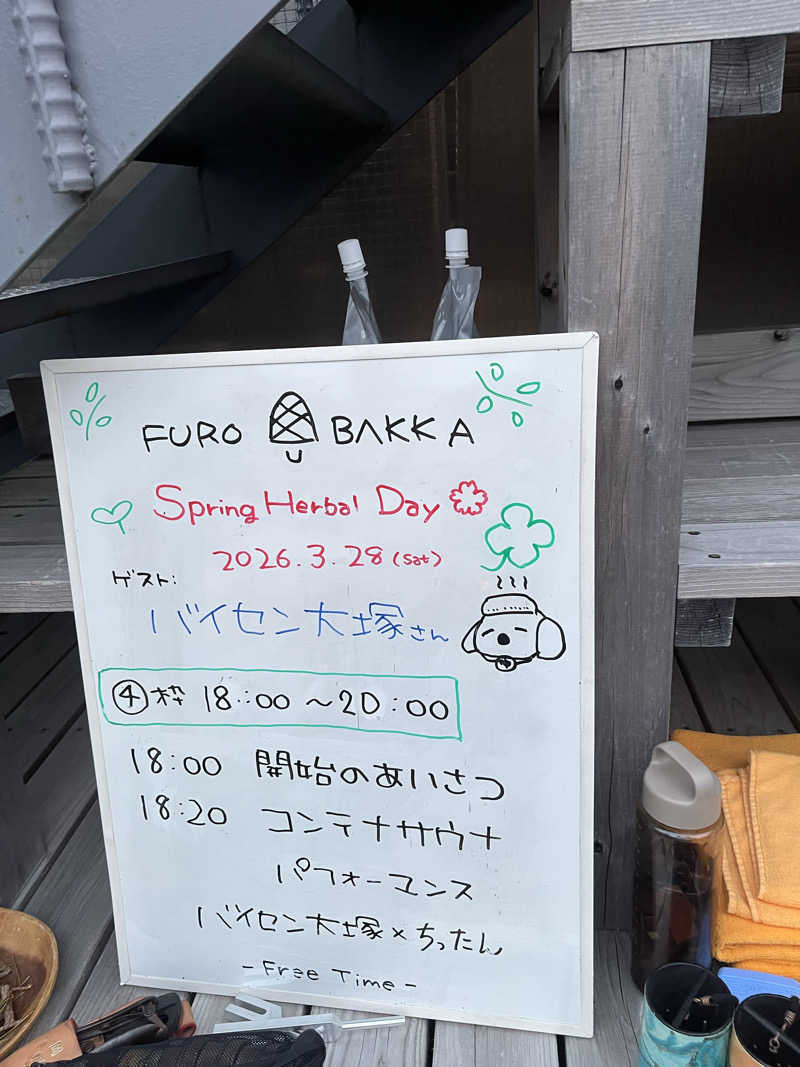 FURO BAKKA
Spring Herbal Day
2026.3.28(Sat)
ゲスト:
バイセン大塚さん
④枠 18:00〜20:00
18:00 開始のあいさつ
18:20 コンテナサウナ
パフォーマンス
バイセン大塚×ちったん
-Free Time-